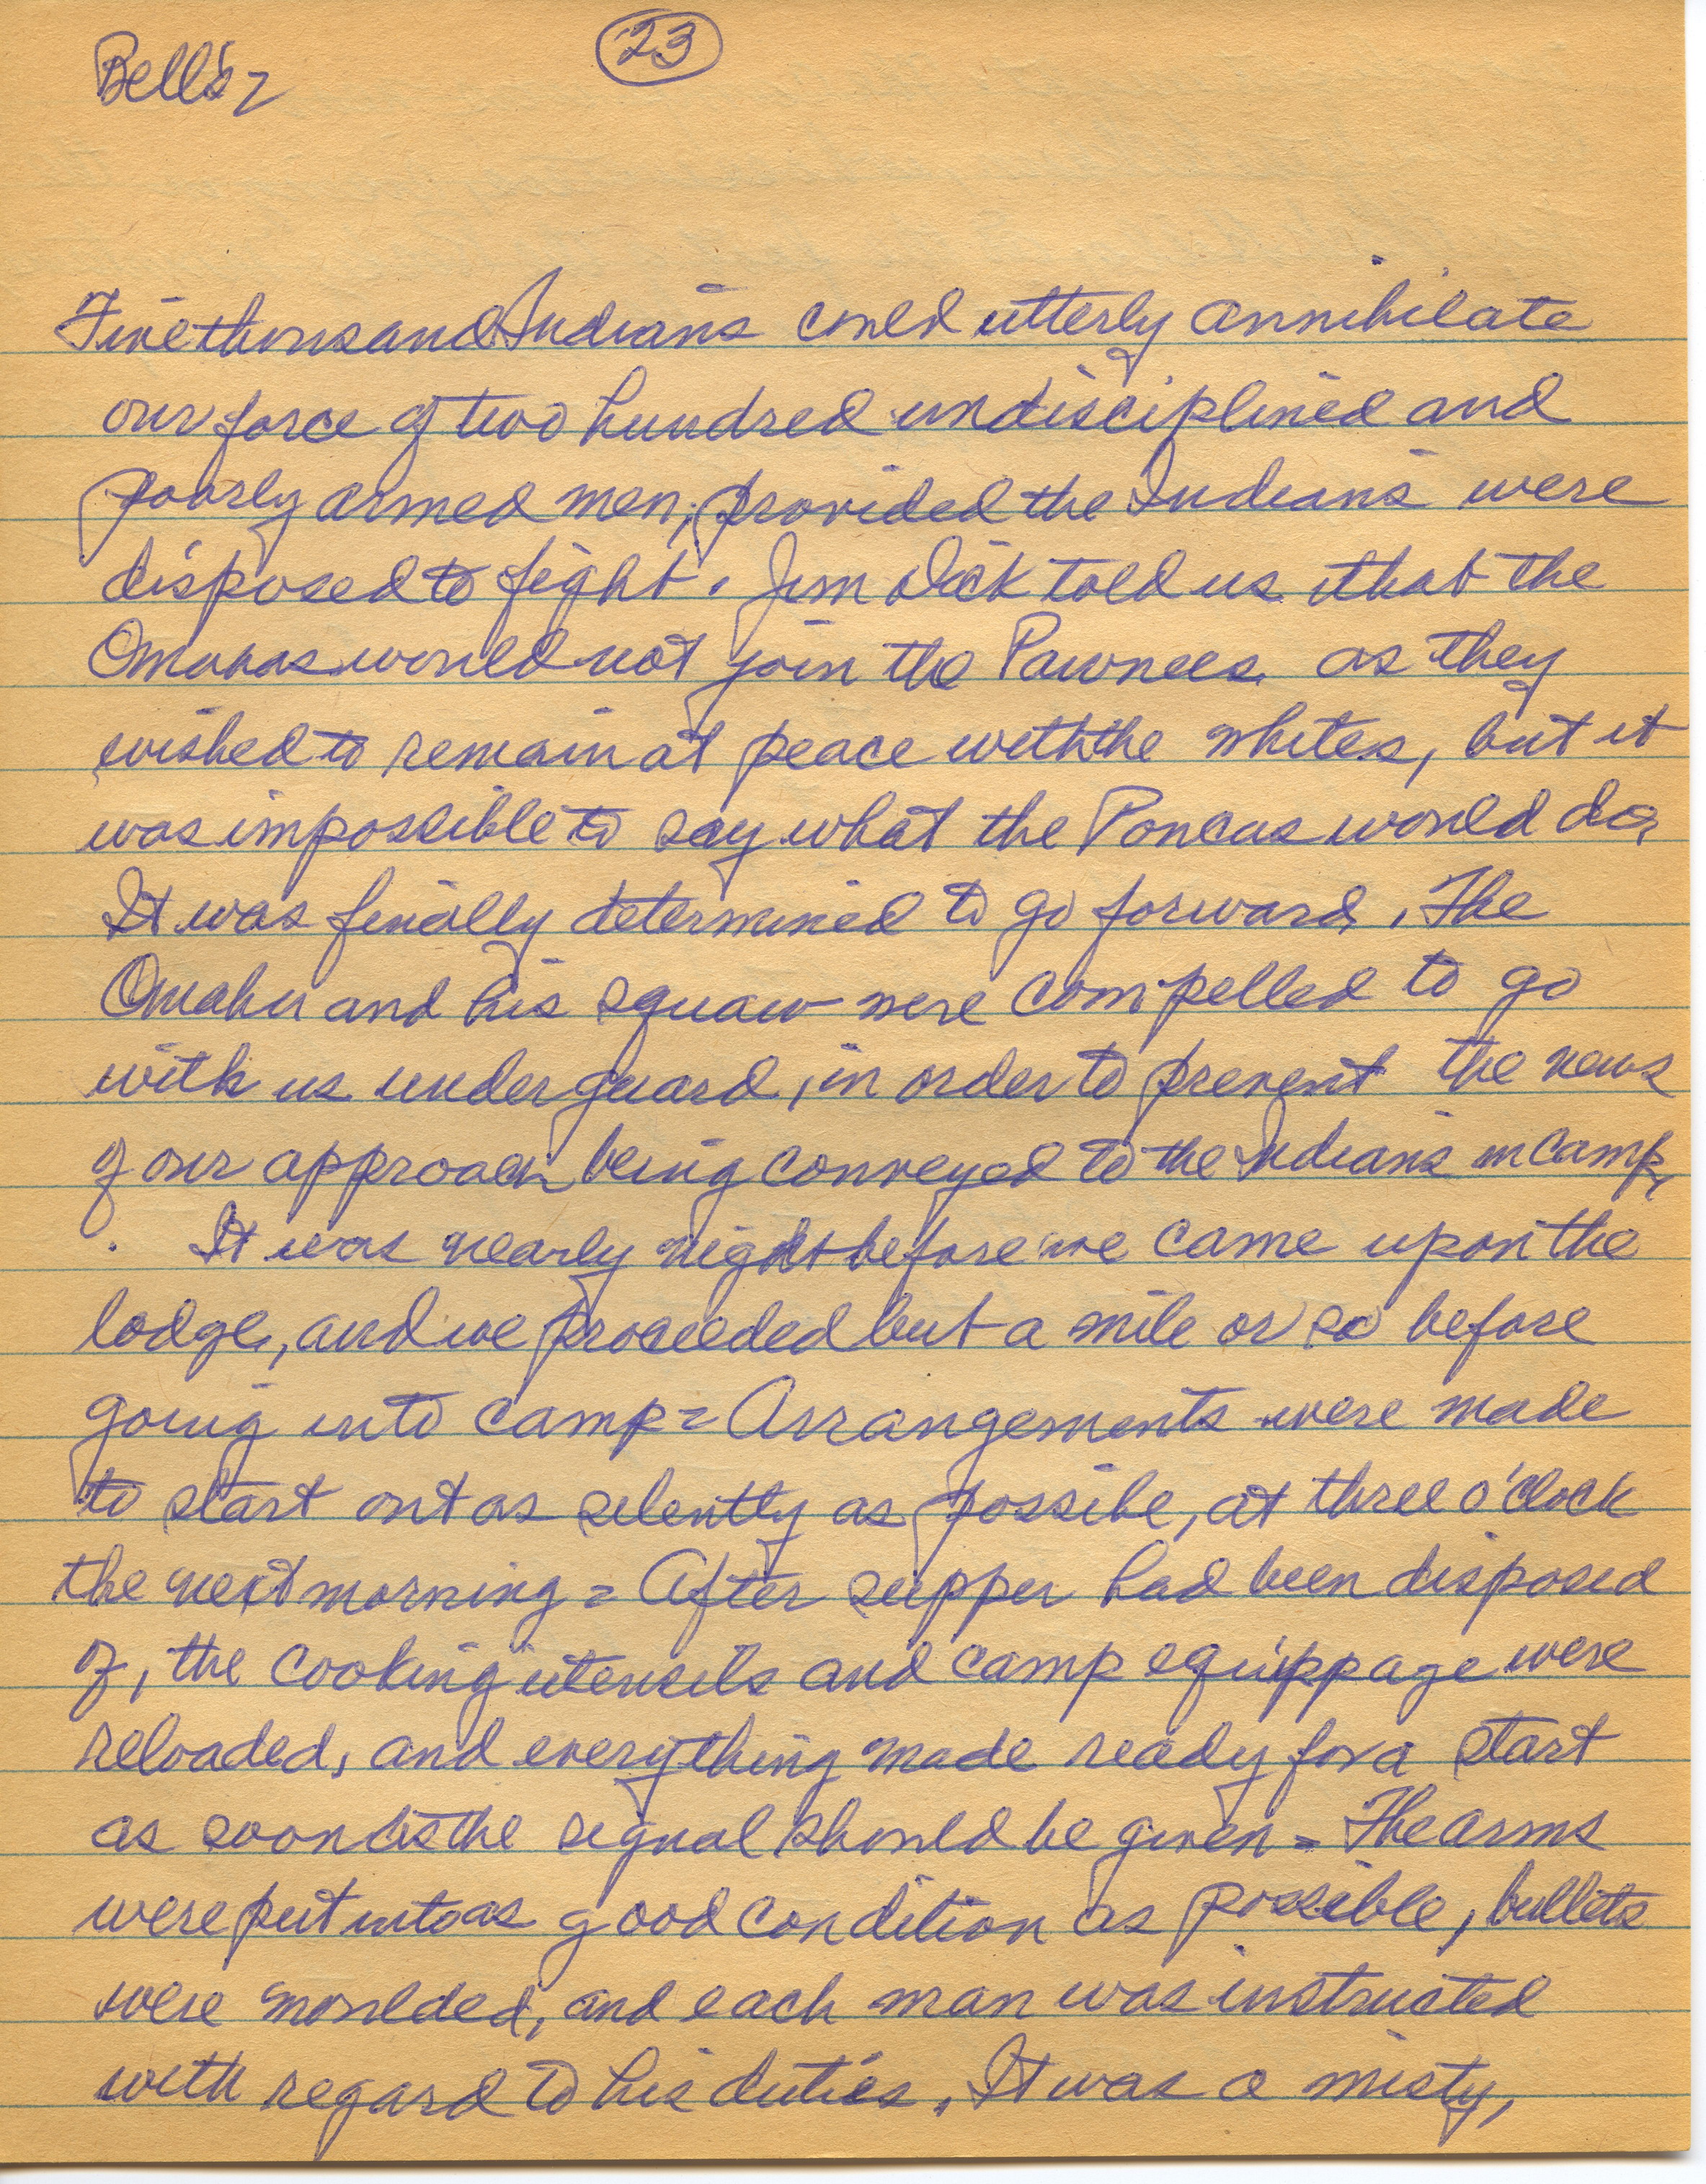 Bell's=
23
Five thousand Indians could utterly annihilate
our force of two hundred undisciplined and
poorly armed men, provided the Indians were
disposed to fight. Jim Dick told us that the
Omahas would not join the Pawnees as they
wished to remain at peace with the whites, but it
was impossible to say what the Poncas would do.
It was finally determined to go forward. The
Omaha and his squaw were compelled to go
with us under guard, in order to prevent the news
of our approach being conveyed to the Indians in camp.
It was nearly night before we came upon the
lodge, and we proceeded but a mile or so before
going into camp= Arrangements were made
to start out as silently as possibe, at three o'clock
the next morning = After supper had been disposed
of, the cooking utensils and camp equippage were
reloaded, and everything made ready for a start
as soon as the signal should be given = The arms
were put into as good condition as possible, bullets
were moulded, and each man was instructed
with regard to his duties. It was a misty,